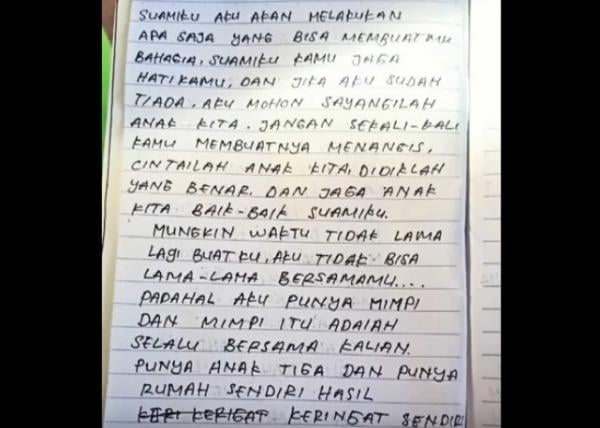 SUAMIKU AKU AKAN MELAKUKAN
APA SAJA YANG BISA MEMBUATMU
BAHAGIA, SUAMIKU KAMU JAGA
HATI KAMU, DAN JIKA AKU SUDAH
TIADA. AKU MOHON SAYANGILAH
ANAK KITA. JANGAN SEKALI-KALI
KAMU MEMBUATNYA MENANGIS,
CINTAILAH ANAK KITA, DIDIKLAH
YANG BENAR. DAN JAGA ANAK
KITA BAIK-BAIK SUAMIKU.
MUNGKIN WAKTU TIDAK LAMA
LAGI BUATKU, AKU TIDAK BISA
LAMA-LAMA BERSAMAMU....
PADAHAL AKU PUNYA MIMPI
DAN MIMPI ITU ADALAH
SELALU BERSAMA KALIAN.
PUNYA ANAK TIGA DAN PUNYA
RUMAH SENDIRI HASIL
KERINGAT SENDIRI